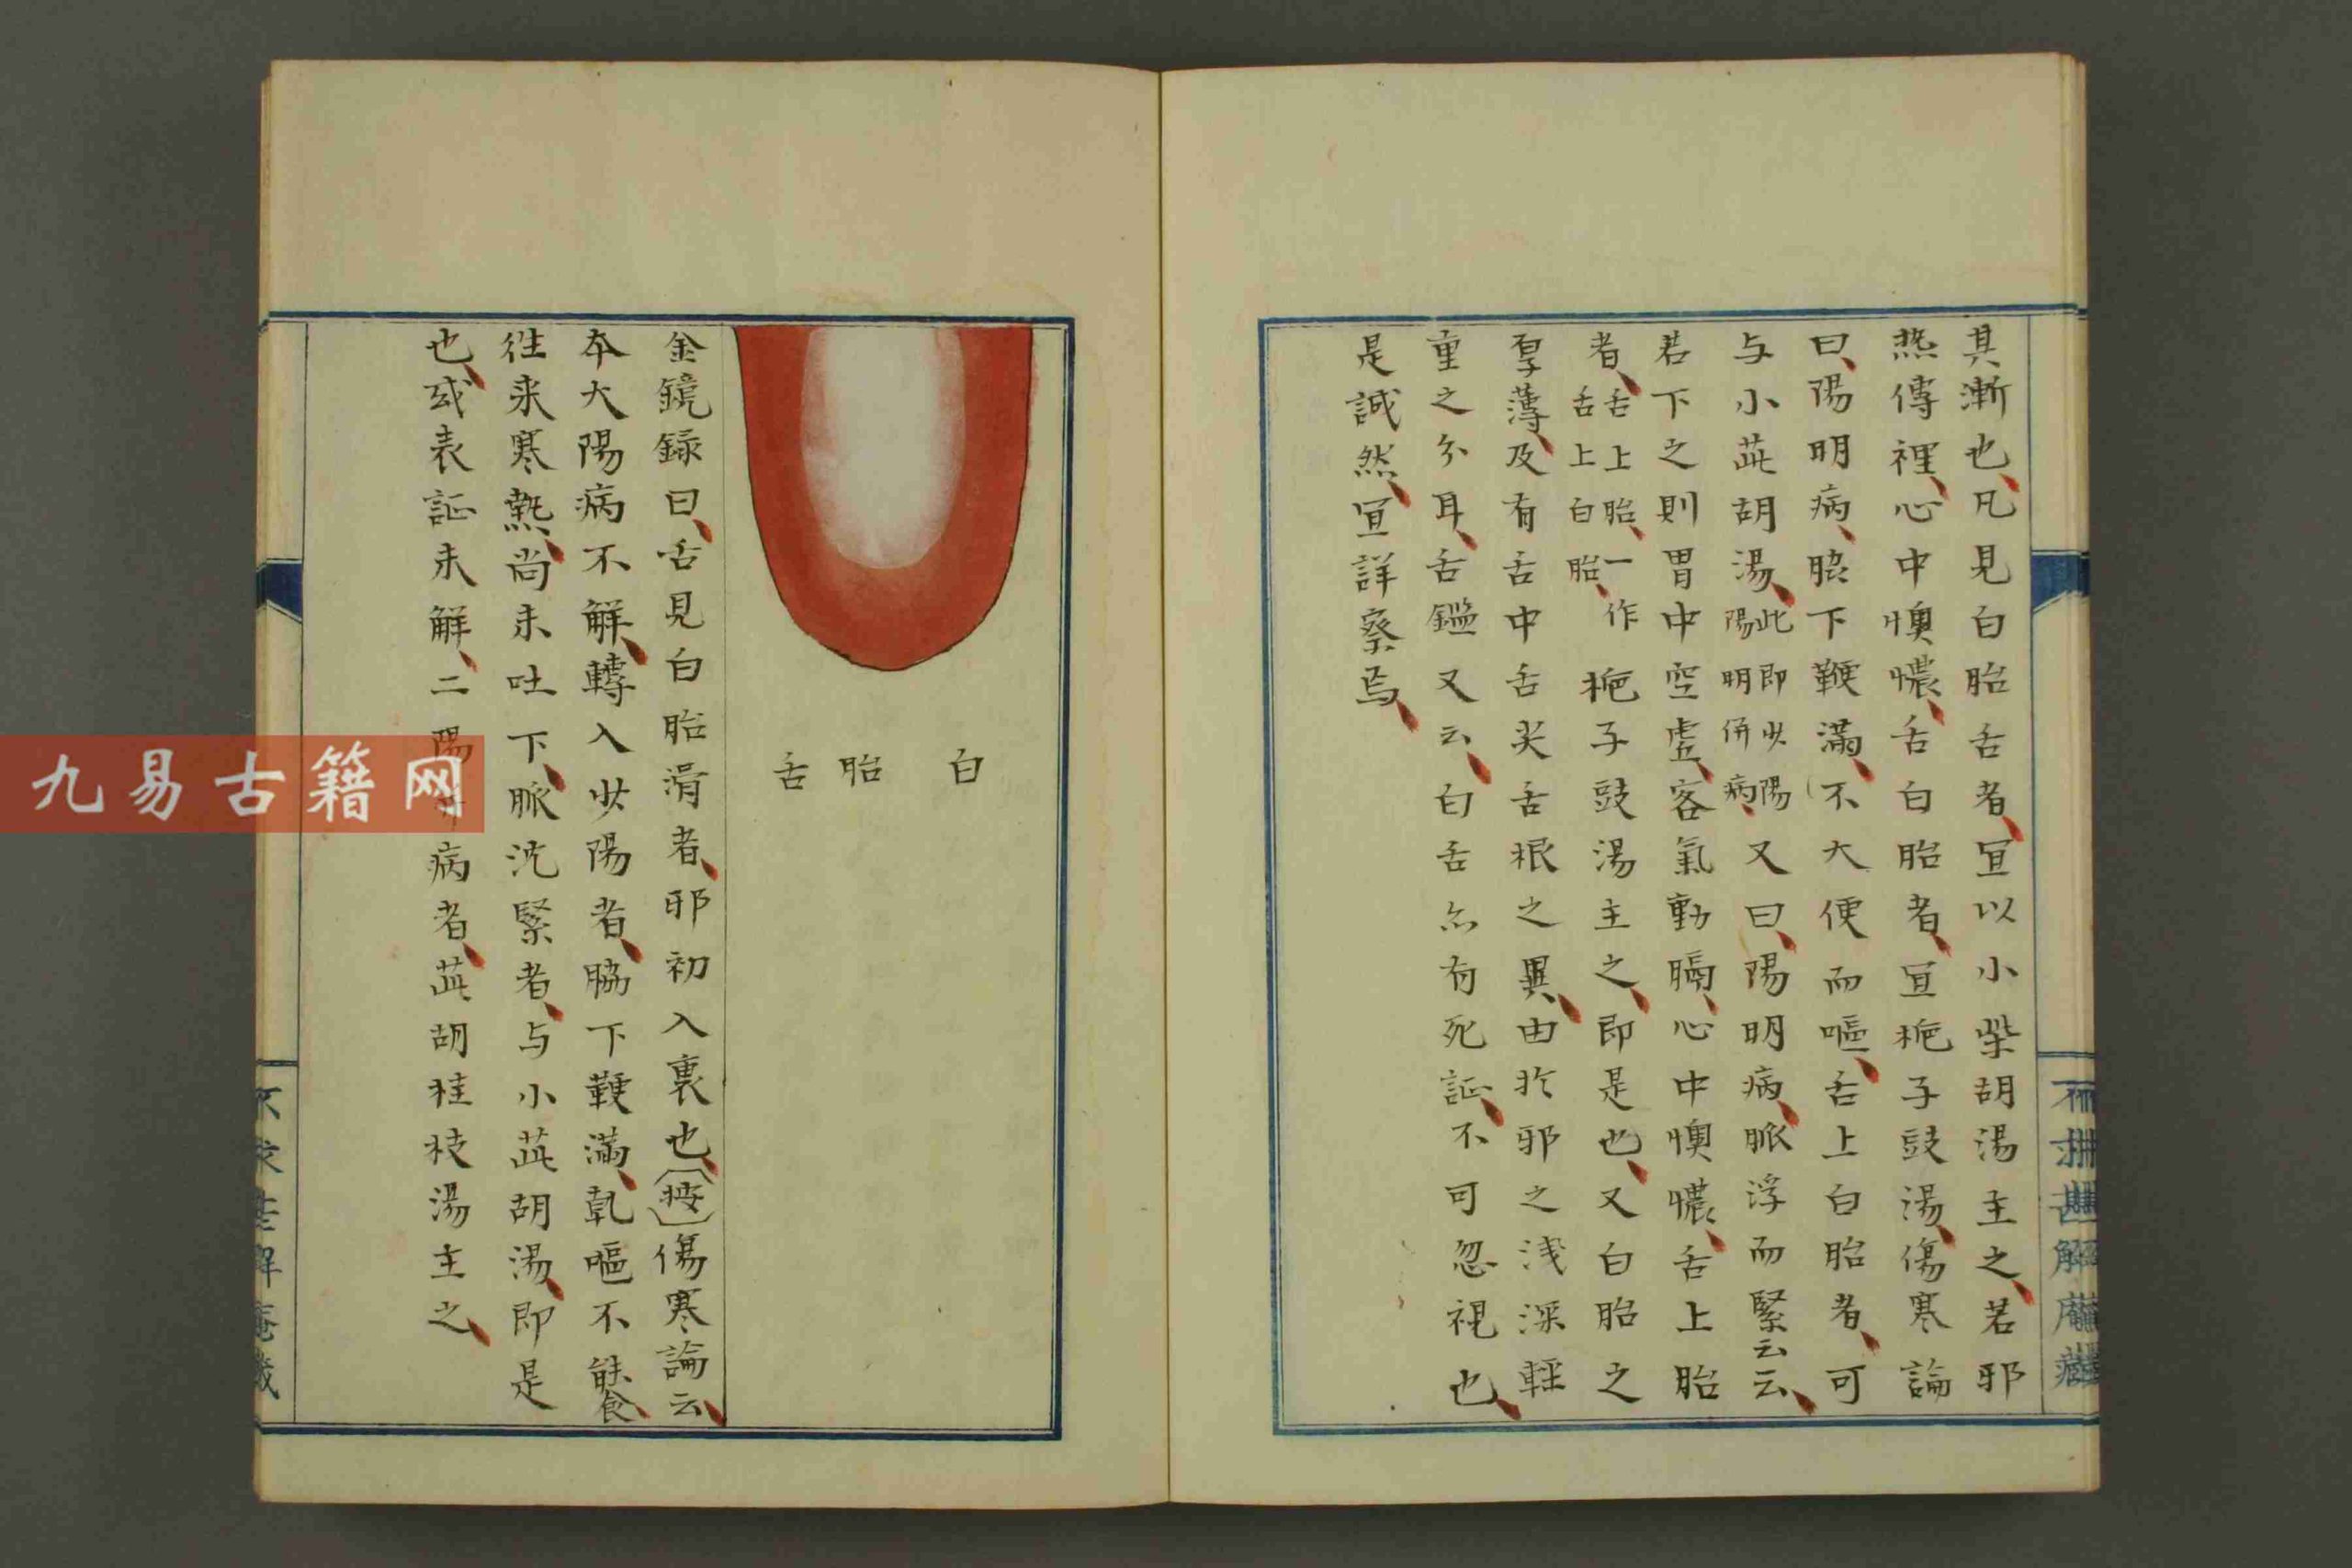 其漸也、凡見白胎舌者、宜以小柴胡湯主之、若邪
熱傳裡、心中懊憹、舌白胎者、宜梔子豉湯、傷寒論
曰、陽明病、脇下鞕滿、不大便而嘔、舌上白胎者、可
与小茈胡湯、此即少陽陽明併病、又曰、陽明病、脈浮而緊云云、
若下之則胃中空虛、客氣動膈、心中懊憹、舌上胎
者、舌上胎、一作舌上白胎、梔子豉湯主之、即是也、又白胎之
厚薄、及有舌中舌尖舌根之異、由於邪之浅深輕
重之分耳、舌鑑又云、白舌亦有死証、不可忽視也、
是誠然、宜詳察焉、
白胎舌
金鏡録曰、舌見白胎滑者、邪初入裏也、(按)傷寒論云、
本大陽病不解、轉入少陽者、脇下鞕滿、乾嘔不能食、
往来寒熱、尚未吐下、脈沈緊者、与小茈胡湯、即是
也、或表証未解、二陽病者、茈胡桂枝湯主之、
九易古籍网